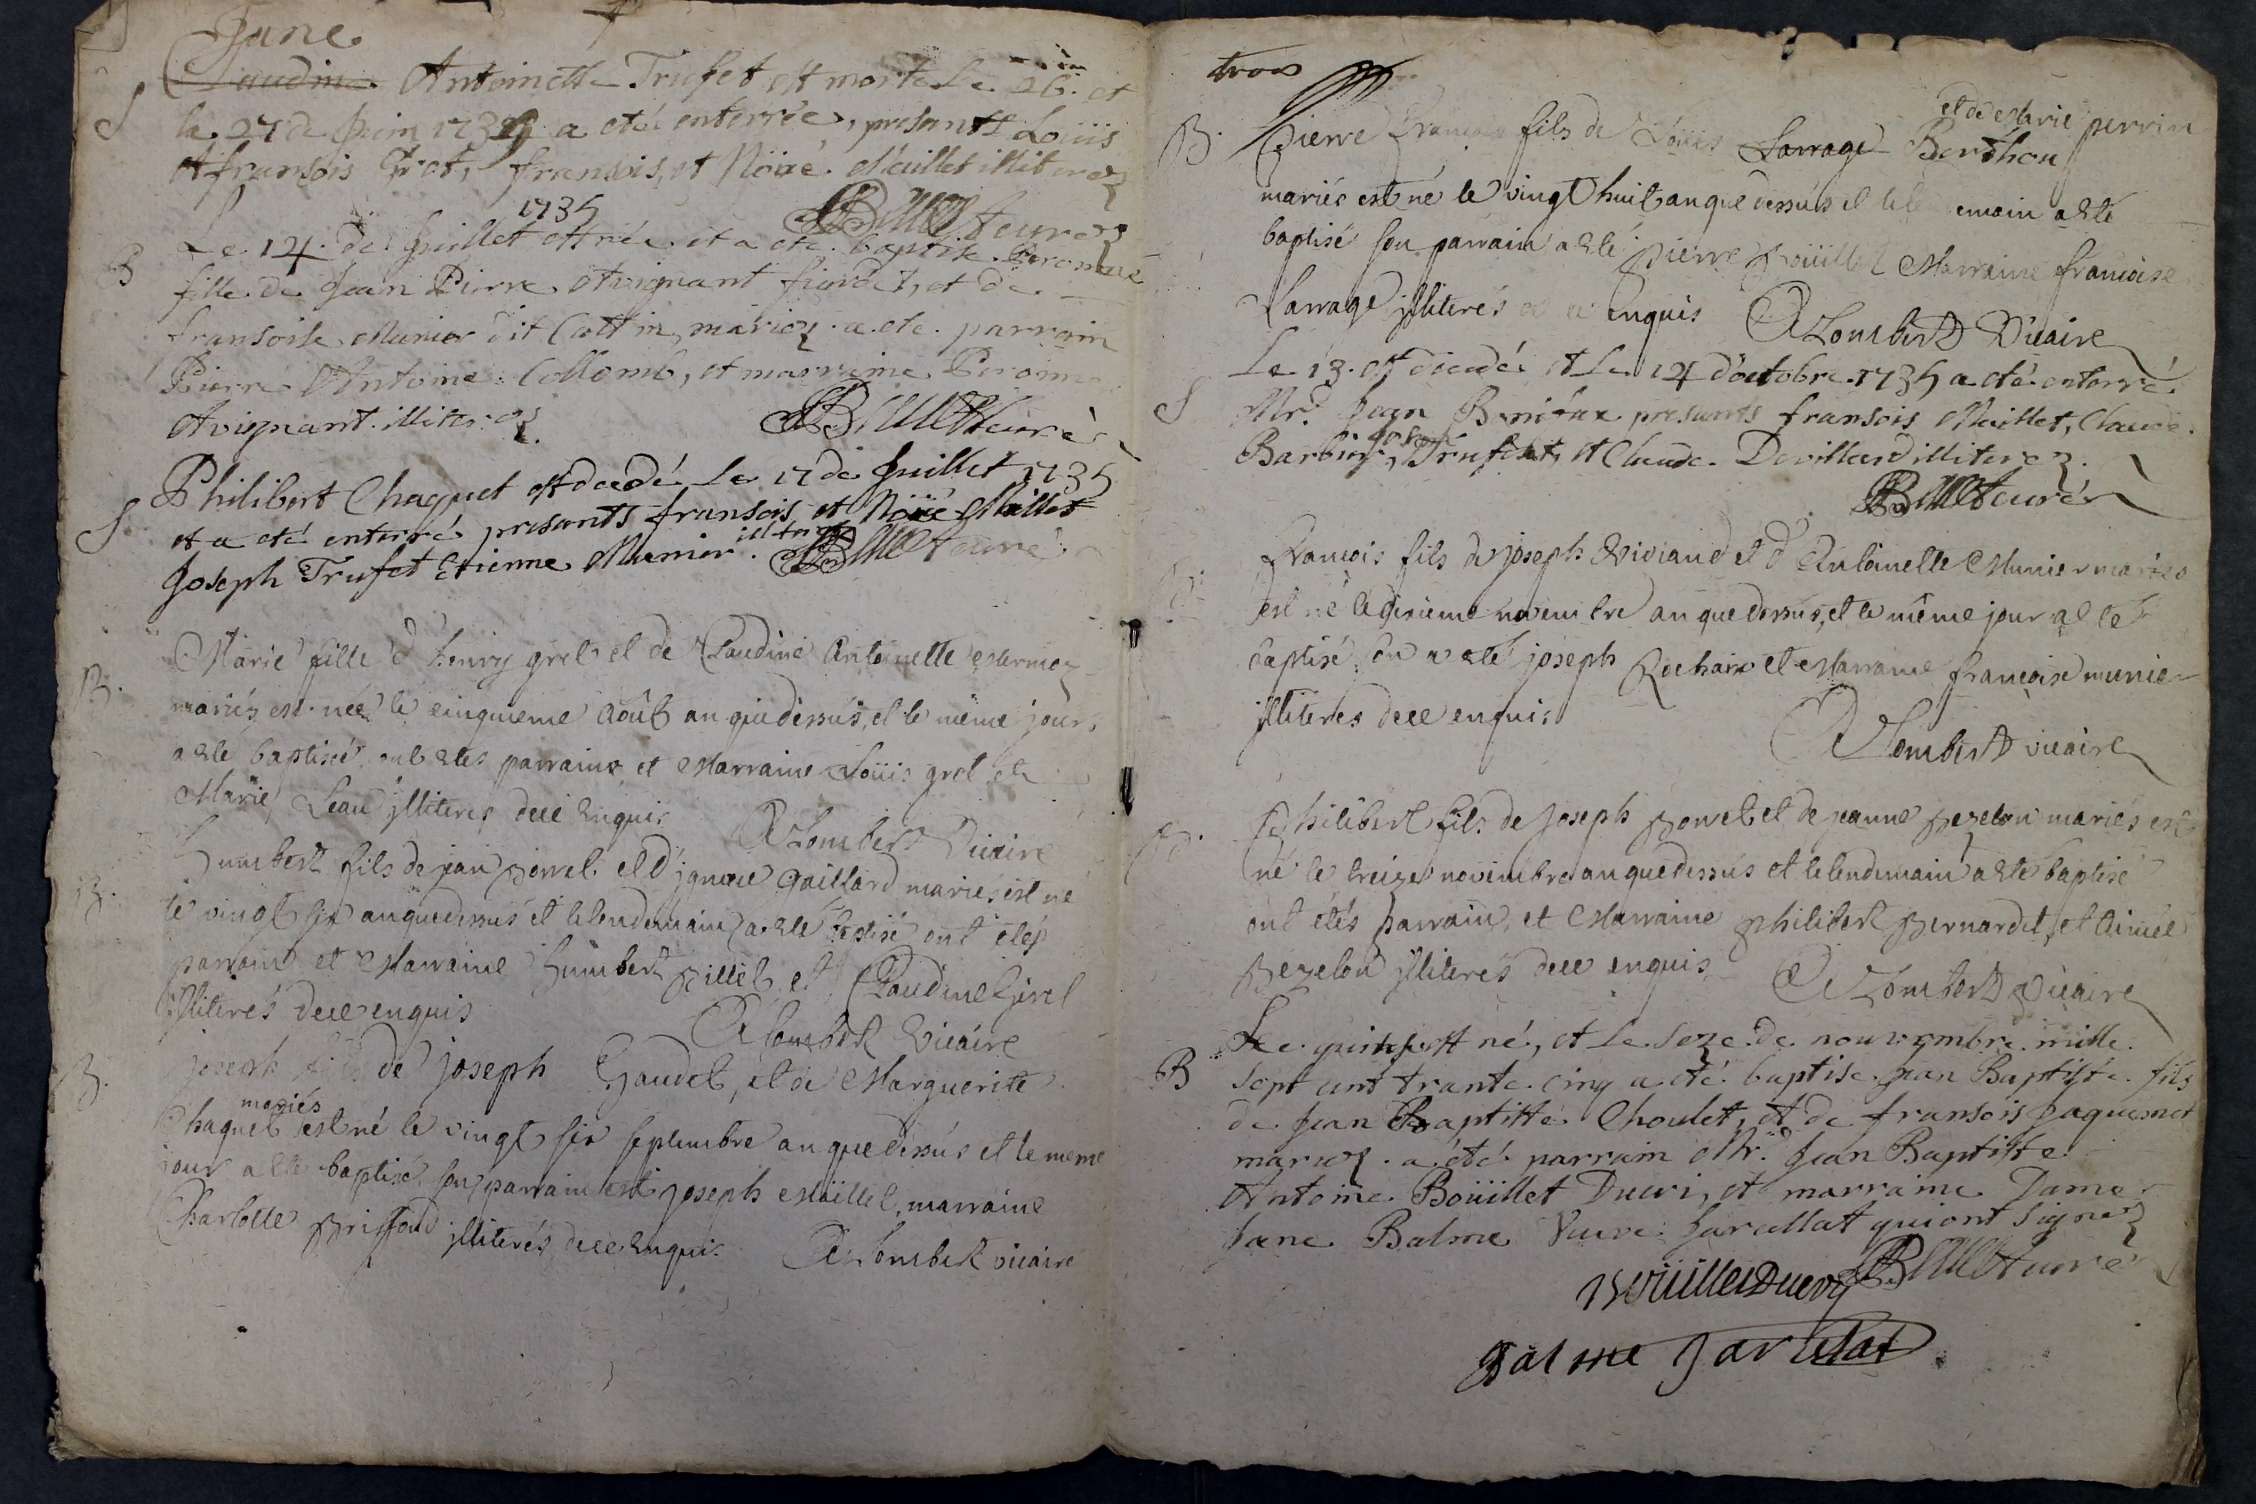 Jane
Claudine Antoinette Trufet est morte le 26. et
S le 27 de Juin 1735 a eté enterrée, presants Loüis
et fransois Gret, fransois, et Noüé Maillet illiterez
Billet curez
1735
B Le 14. de Juillet est née et a eté baptisé Peronne
fille de Jean Pierre Avignant et de
fransoise Munier dit Cottin, mariez. a eté. parrain
Pierre Antoine Collomb, et marraine Peronne
Avignant. illiterez.
Billet curé
Philibert Chaquet est decedé le 17 de Juillet 1735
S et a eté enterré presants fransois et Noüé Maillet
Joseph Trufet Etienne Munier illiterez Billet curé
Marie fille d'henry gret et de Claudine Antoinette Mermez
B. mariés est née le cinquieme Août an que dessus, et le même jour,
a eté baptisée, ont etes parrains et Marraine Loüis gret et
Marie Leau jlliteres de ce enquis
A Lombert Vicaire
Humbert fils de jean et d' gaillard mariés est né
B. le vingt six an que dessus et le lendemain a eté baptisé ont étés
parrain et Marraine humbert Billet et Claudine Girel
jlliterés de ce enquis
A Lombert Vicaire
B. joseph fils de joseph Gaudet, et de Marguerite
mariés
Chaquet est né le vingt six septembre an que dessus et le meme
jour a eté baptisé son parrain est joseph Maillet, marraine
Charlotte jlliterés de ce enquis A Lombert vicaire
trois
et de Marie perrin
B. Pierre françois fils de Loüis Larrage Berthou
mariés est né le vingt huit an que dessus et le lendemain a eté
baptisé son parrain a eté pierre Boüillet Marraine françoise
Larrage jlliterés de ce enquis A Lombert Vicaire
Le 13. est decedé et le 14 d'octobre 1735 a eté enterré.
S Mr. Jean presants fransois Maillet, Claude
Barbier, Joseph Trufet, et Claude Devillard illiterez.
Billet curé
françois fils de joseph Viviand et d'Antoinette Munier mariés
B. est né le novembre an que dessus, et le même jour a eté
baptisé ou a eté joseph Rochaix et Marraine françoise munier
jlliterés de ce enquis
A Lombert vicaire
B. Philibert fils de joseph Borret et de jeanne Bezelon mariés est
né le treize novembre an que dessus et le lendemain a eté baptisé
ont étés parrain, et Marraine philibert Bernardet, et Aimée
Bezelon jlliterés de ce enquis A Lombert Vicaire
Le quinse est né, et le seze de nouvembre mille
B sept cent trante. cinq a eté baptisé Jean Baptiste fils
de Jean Baptiste Choulet, et de fransois Jaquemet
mariez. a été parrain Mr. Jean Baptiste
Antoine Boüillet Ducri, et marraine Dame
Jane Balme Veuve Jarcellat qui ont signez
Boüillet Ducry Billet curé
Balme Jarcellat